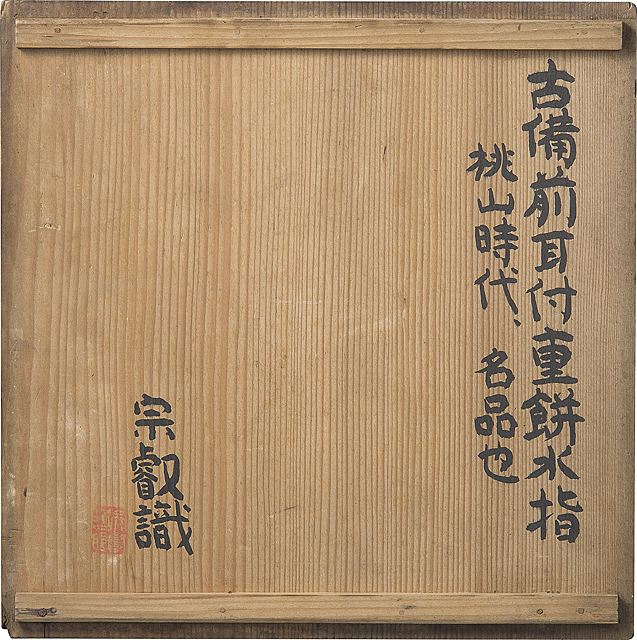 古備前耳付重餅水指
桃山時代、名品也
宗叡識